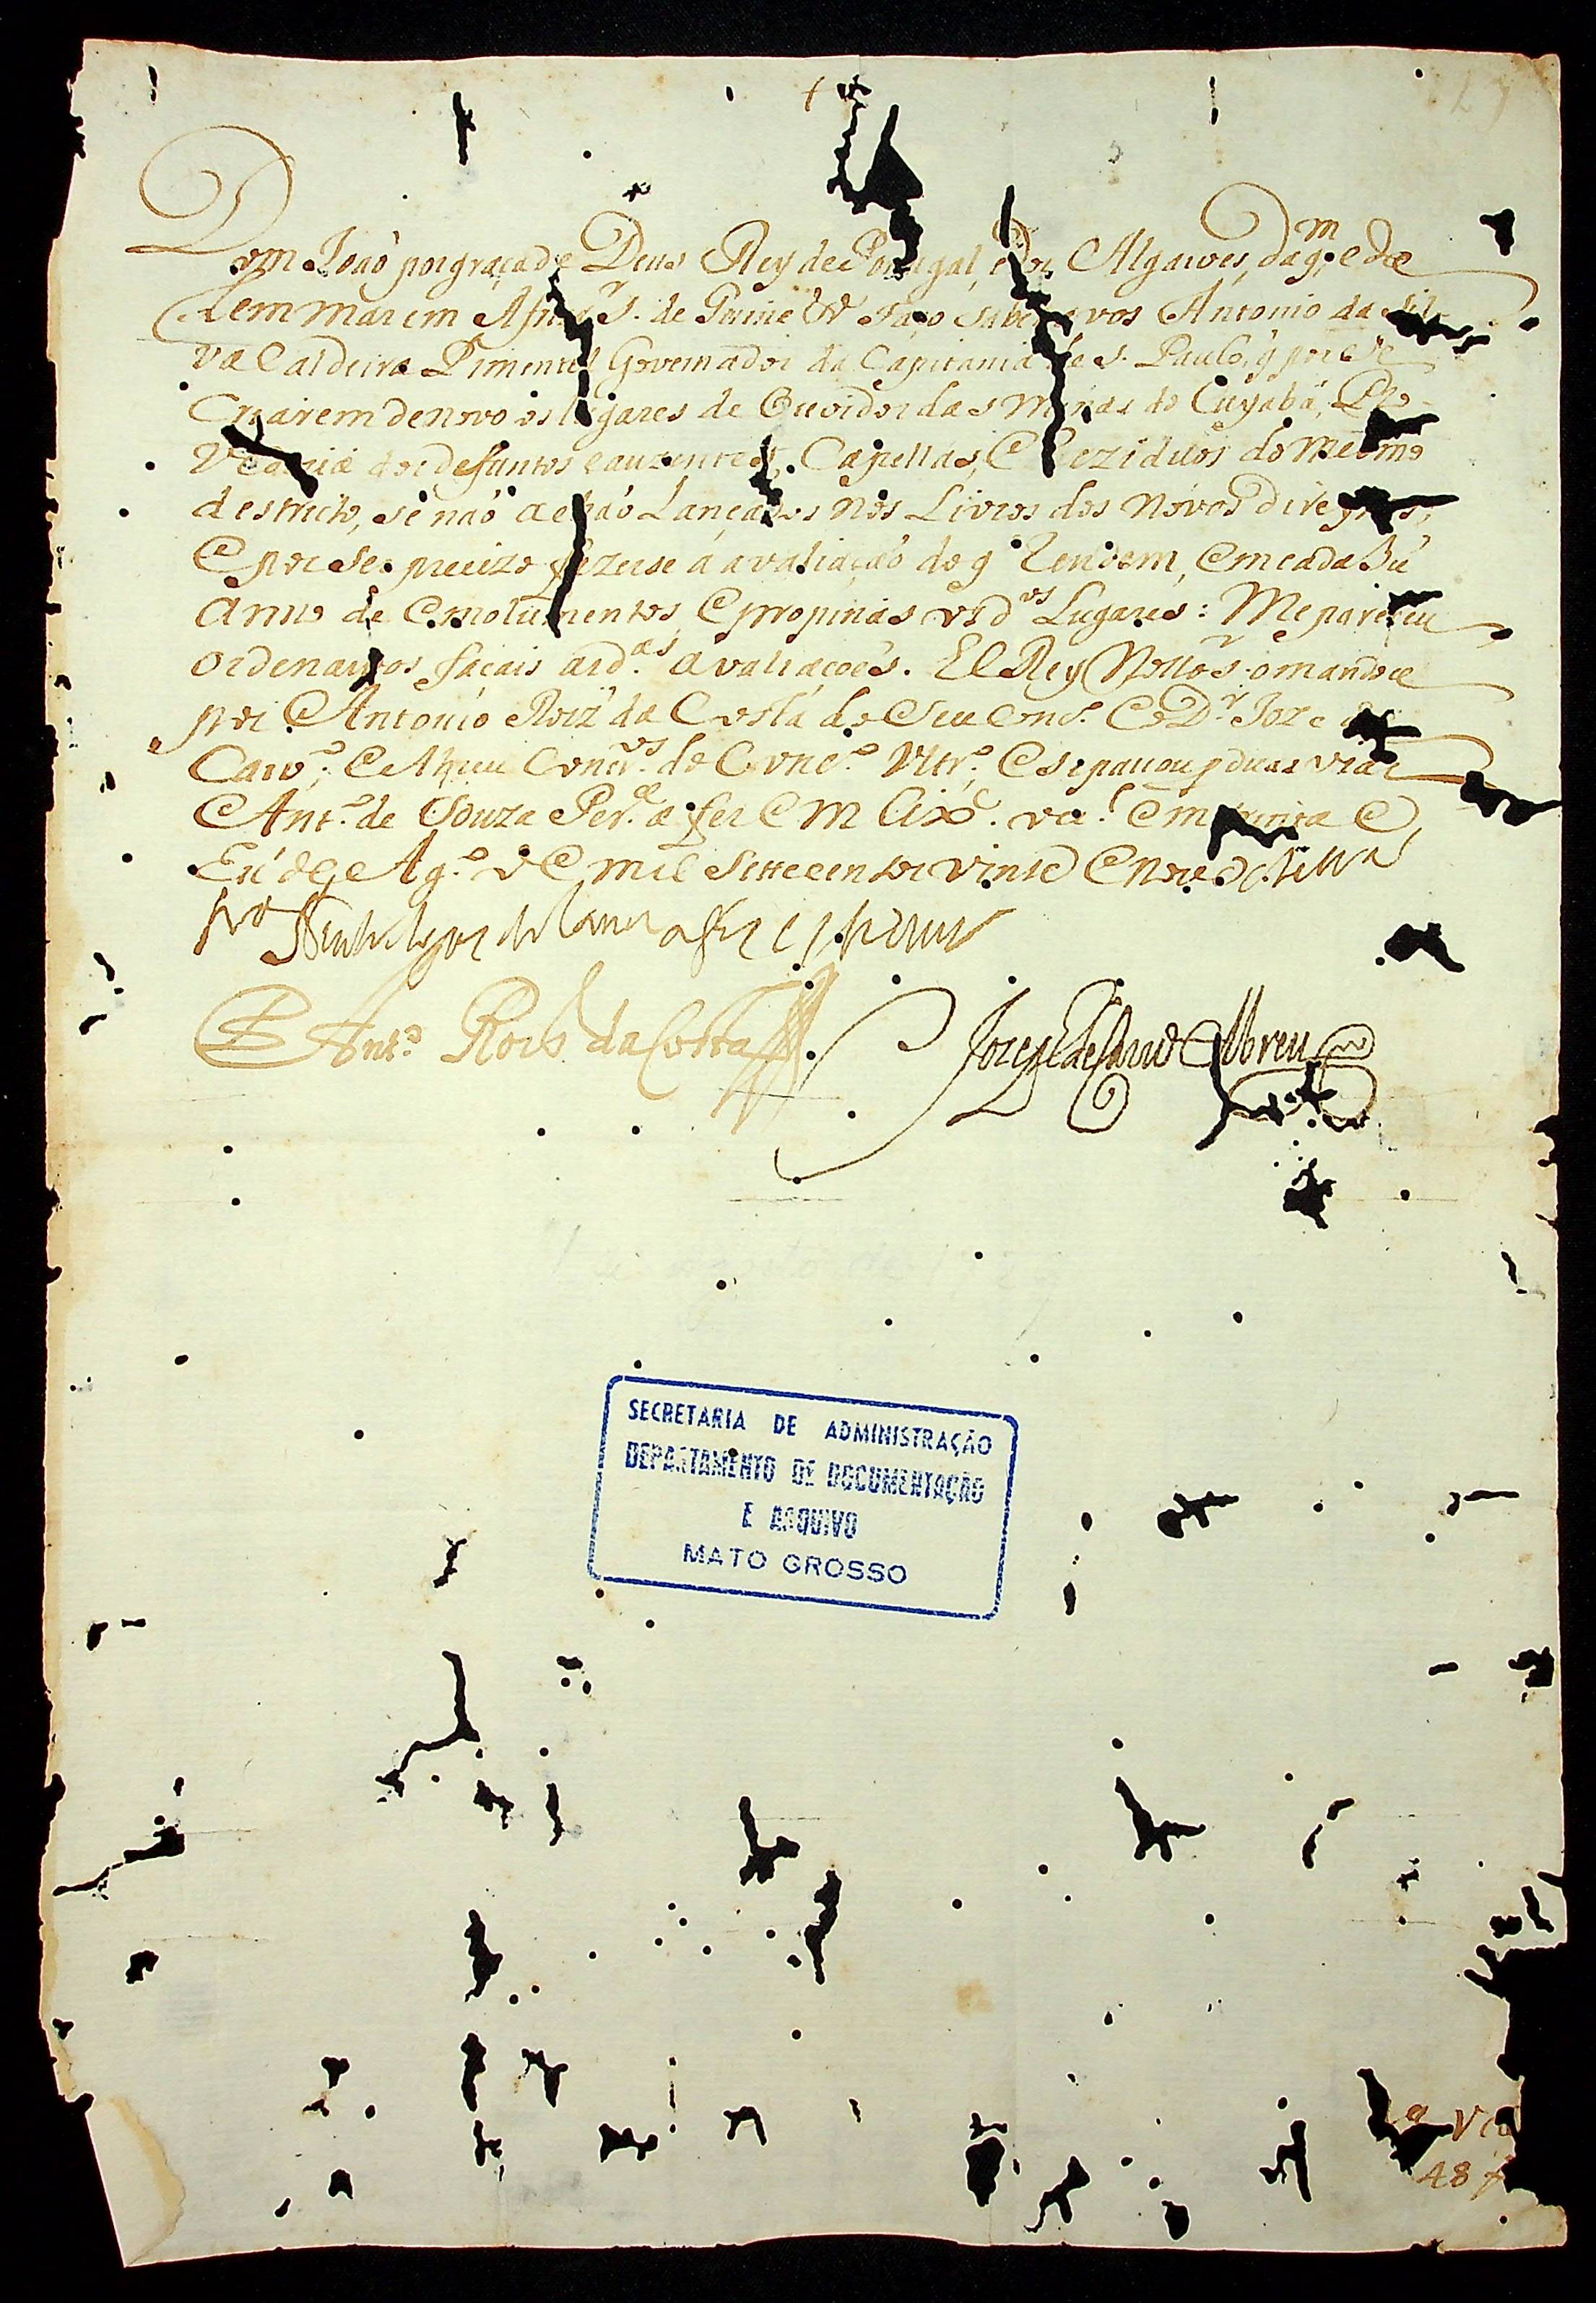 Dom João por graça de Deus Rey de Portugal, e dos Algarves, daq.m e da
lem mar em Afri S. de Guine &c Faço saber a vos Antonio da Sil
va Caldeira Pimentel Governador da Capitania de S. Paulo, q̃ por se
crearem de novo os lugares de Ouvidor das Minas do Cuyabá, Pro
Vedoria dos defuntos e auzentes, Capellas, e Reziduos do mesmo
destricto, se não achaõ Lançados nos Livros dos novos direytos,
e por ser precizo fazerse a avaliação do q̃ Rendem, em cada hũ
anno de emolumentos, e propinas os d.os Lugares: Me pareceu
ordenarvos façais as d.as avaliaçoẽs. El Rey Nosso S.r o mandou
por Antonio Roiz da Costa do seu Cons.o e o D.r Joze de
Carv.o, e Abreu Cons.ros do Cons.o Ultr.o, e se passou p duas vias
Ant.o de Souza Per.a a fez em Lix.a occ.l em trinta e
hũ de Ag.o de mil settecentos vinte e nove
a fez escrever
Ant.o Rois da Costa
Joze de Carv.o e Abreu
SECRETARIA DE ADMINISTRAÇÃO
DEPARTAMENTO DE DOCUMENTAÇÃO
E ARQUIVO
MATO GROSSO
48